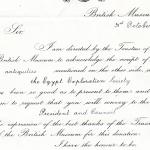 British Museum
5th October
Sir,
I am directed by the Trustees of
British Museum to acknowledge the receipt of
antiquities mentioned on the other side,
the Egypt Exploration Society
have been so good as to present to them and
to request that you will convey to the
President and Council
expression of the best thanks of the Trustees
of the British Museum for this donation.
I have the honour to be,